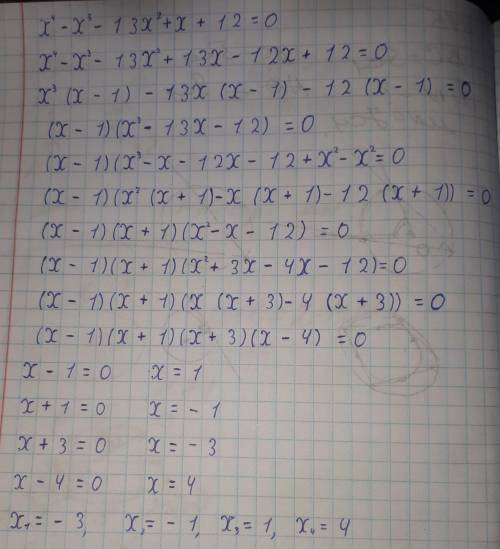 x⁴ - x³ - 13x² + x + 12 = 0
x⁴ - x³ - 13x² + 13x - 12x + 12 = 0
x³ (x - 1) - 13x (x - 1) - 12 (x - 1) = 0
(x - 1)(x³ - 13x - 12) = 0
(x - 1)(x³ - x - 12x - 12 + x² - x² = 0
(x - 1)(x² (x + 1) - x (x + 1) - 12 (x + 1)) = 0
(x - 1)(x + 1)(x² - x - 12) = 0
(x - 1)(x + 1)(x² + 3x - 4x - 12) = 0
(x - 1)(x + 1)(x (x + 3) - 4 (x + 3)) = 0
(x - 1)(x + 1)(x + 3)(x - 4) = 0
x - 1 = 0 x = 1
x + 1 = 0 x = - 1
x + 3 = 0 x = - 3
x - 4 = 0 x = 4
x₁ = - 3, x₂ = - 1, x₃ = 1, x₄ = 4